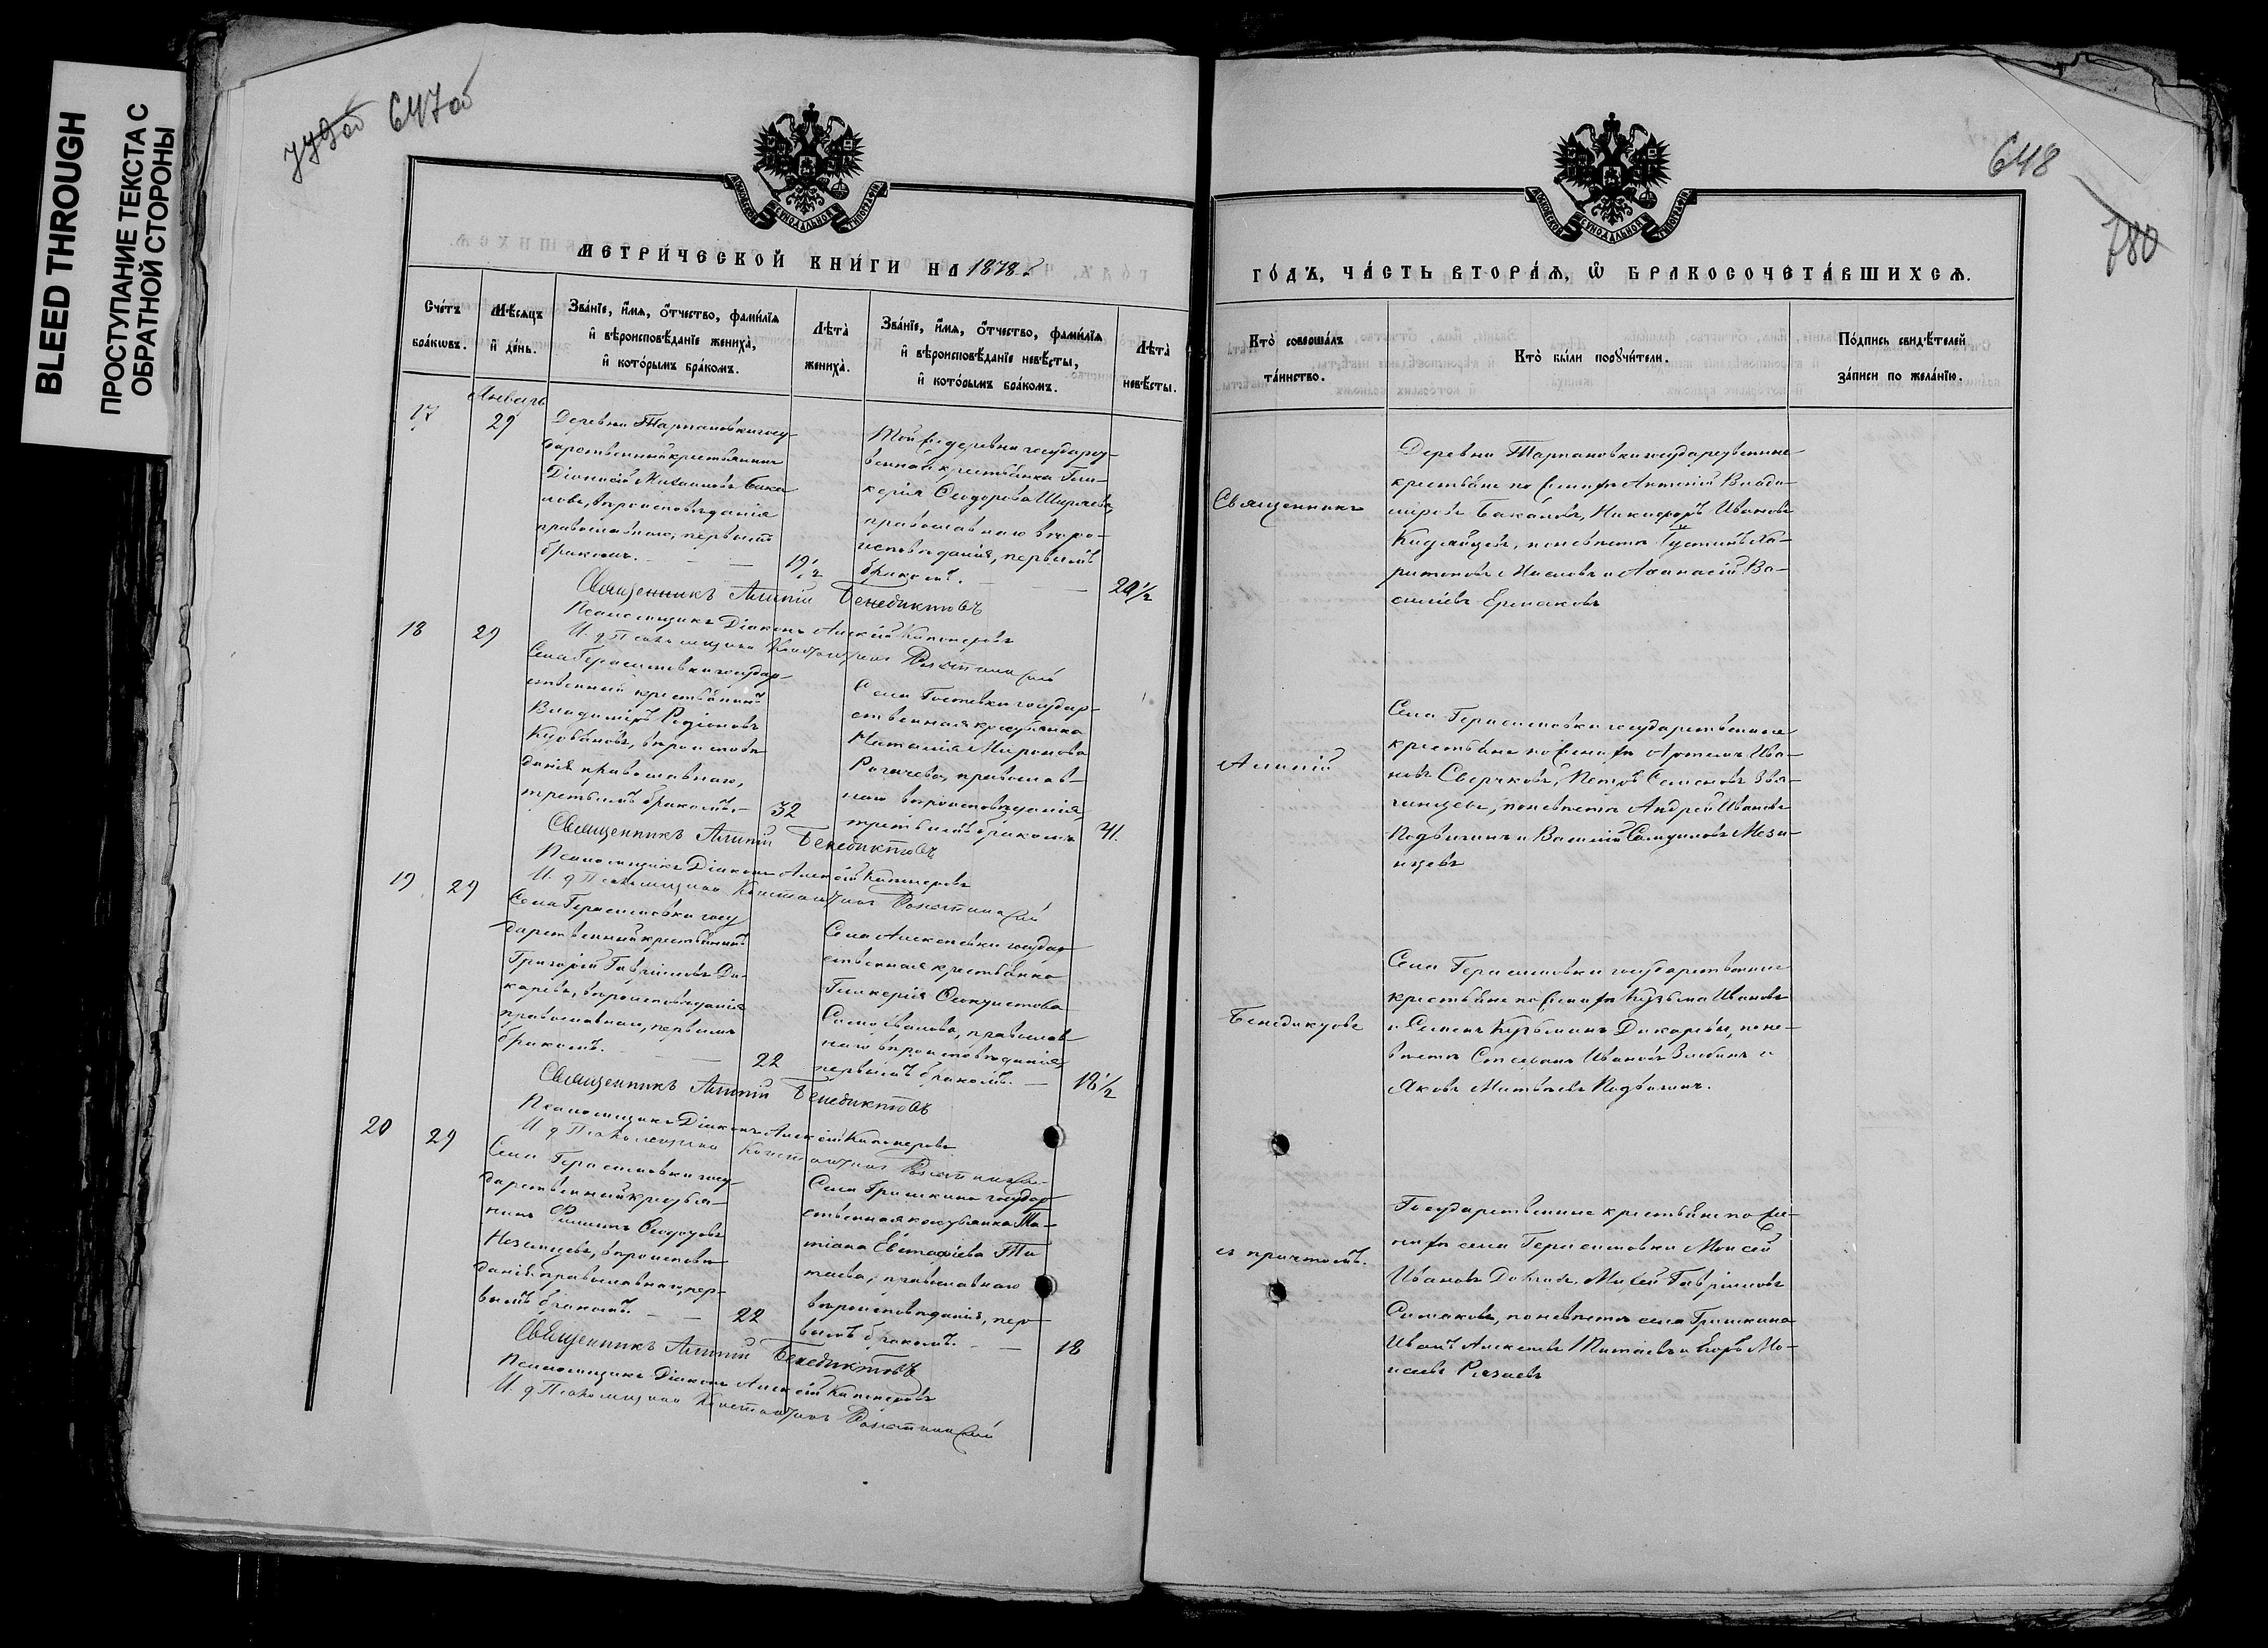 BLEED THROUGH
ПРОСТУПАНИЕ ТЕКСТА С
ОБРАТНОЙ СТОРОНЫ
647об
МЕТРИ́ЧЕСКОЙ КНИ́ГИ НА 1878
Сче́тъ бра́кωвъ.
Мѣ́сяцъ и҆ де́нь.
Зва́нїе, и҆́мѧ, ѻ҆́тчество, фами́лїѧ и҆ вѣроисповѣ́данїе жениха̀, и҆ кото́рымъ бра́комъ.
Лѣта̀ жениха̀.
Зва́нїе, и҆́мѧ, ѻ҆́тчество, фами́лїѧ и҆ вѣроисповѣ́данїе невѣ́сты, и҆ кото́рымъ бра́комъ.
Лѣта̀ невѣ́сты.
Январь
17
29
Деревни Тарпановки госу-
дарственный крестьянинъ
Діонисій Михаиловъ Бака-
новъ, вѣроисповѣданія
православнаго, первымъ
бракомъ.
19 1/2
Той же деревни государст-
венная крестьянка Гли-
керія Ѳеодорова Ширяева,
православнаго вѣро-
исповѣданія, первымъ
бракомъ.
20 1/2
Священникъ Алипій Бенедиктовъ
Псаломщикъ Діаконъ Алексій
И. д. Псаломщика Константинъ
18
29
Села Герасимовки государ-
ственный крестьянинъ
Владиміръ Родіоновъ
вѣроисповѣ-
данія православнаго,
третьимъ бракомъ.
32
Села государ-
ственная крестьянка
Наталія Миронова
Рогачева, православ-
наго вѣроисповѣданія,
третьимъ бракомъ
41.
Священникъ Алипій Бенедиктовъ
Псаломщикъ Діаконъ Алексій
И. д. Псаломщика Константинъ
19
29
Села Герасимовки госу-
дарственный крестьянинъ
Григорій Гавріиловъ Ди-
каревъ, вѣроисповѣданія
православнаго, первымъ
бракомъ.
22
Села Алексѣевки государ-
ственная крестьянка
Гликерія Ѳеоктистова
православ-
наго вѣроисповѣданія,
первымъ бракомъ.
18 1/2
Священникъ Алипій Бенедиктовъ
Псаломщикъ Діаконъ Алексій
И. д. Псаломщика Константинъ
20
29
Села Герасимовки госу-
дарственный крестья-
нинъ Филиппъ Ѳеодоровъ
Незамцевъ, вѣроисповѣ-
данія православнаго, пер-
вымъ бракомъ.
22
Села Гришкина государ-
ственная крестьянка Та-
тіана Евстафіева Ти-
таева, православнаго
вѣроисповѣданія, пер-
вымъ бракомъ.
18
Священникъ Алипій Бенедиктовъ
Псаломщикъ Діаконъ Алексій
И. д. Псаломщика Константинъ
648
780
ГО́ДЪ, ЧА́СТЬ ВТОРА́Ѧ, Ѡ҆ БРАКОСОЧЕТА́ВШИХСѦ.
Кто̀ соверша́лъ та́инство.
Кто̀ бы́ли порꙋчи́тели.
По́дпись свидѣ́телей за́писи по жела́нїю.
Священникъ
Алипій
Бенедиктовъ
съ причтомъ.
Деревни Тарпановки государственные
крестьяне по женихѣ Антоній Влади-
міровъ Бакановъ, Никифоръ Ивановъ
по невѣстѣ Іустинъ Ха-
ритоновъ Масловъ и Аѳанасій Ва-
силіевъ Ермаковъ
Села Герасимовки государственные
крестьяне по женихѣ Артемъ Ива-
новъ Сверчковъ, Петръ Семеновъ Звя-
гинцевъ, по невѣстѣ Андрей Ивановъ
Подвигинъ и Василій
Села Герасимовки государственные
крестьяне по женихѣ Кузьма Ивановъ
и Семенъ Кузьминъ Дикаревы, по не-
вѣстѣ Стефанъ Ивановъ и
Яковъ Матвѣевъ Подвигинъ.
Государственные крестьяне по же-
нихѣ села Герасимовки Моисей
Ивановъ Гавріиловъ
по невѣстѣ села Гришкина
Иванъ Алексѣевъ Титаевъ и Егоръ Мо-
исеевъ